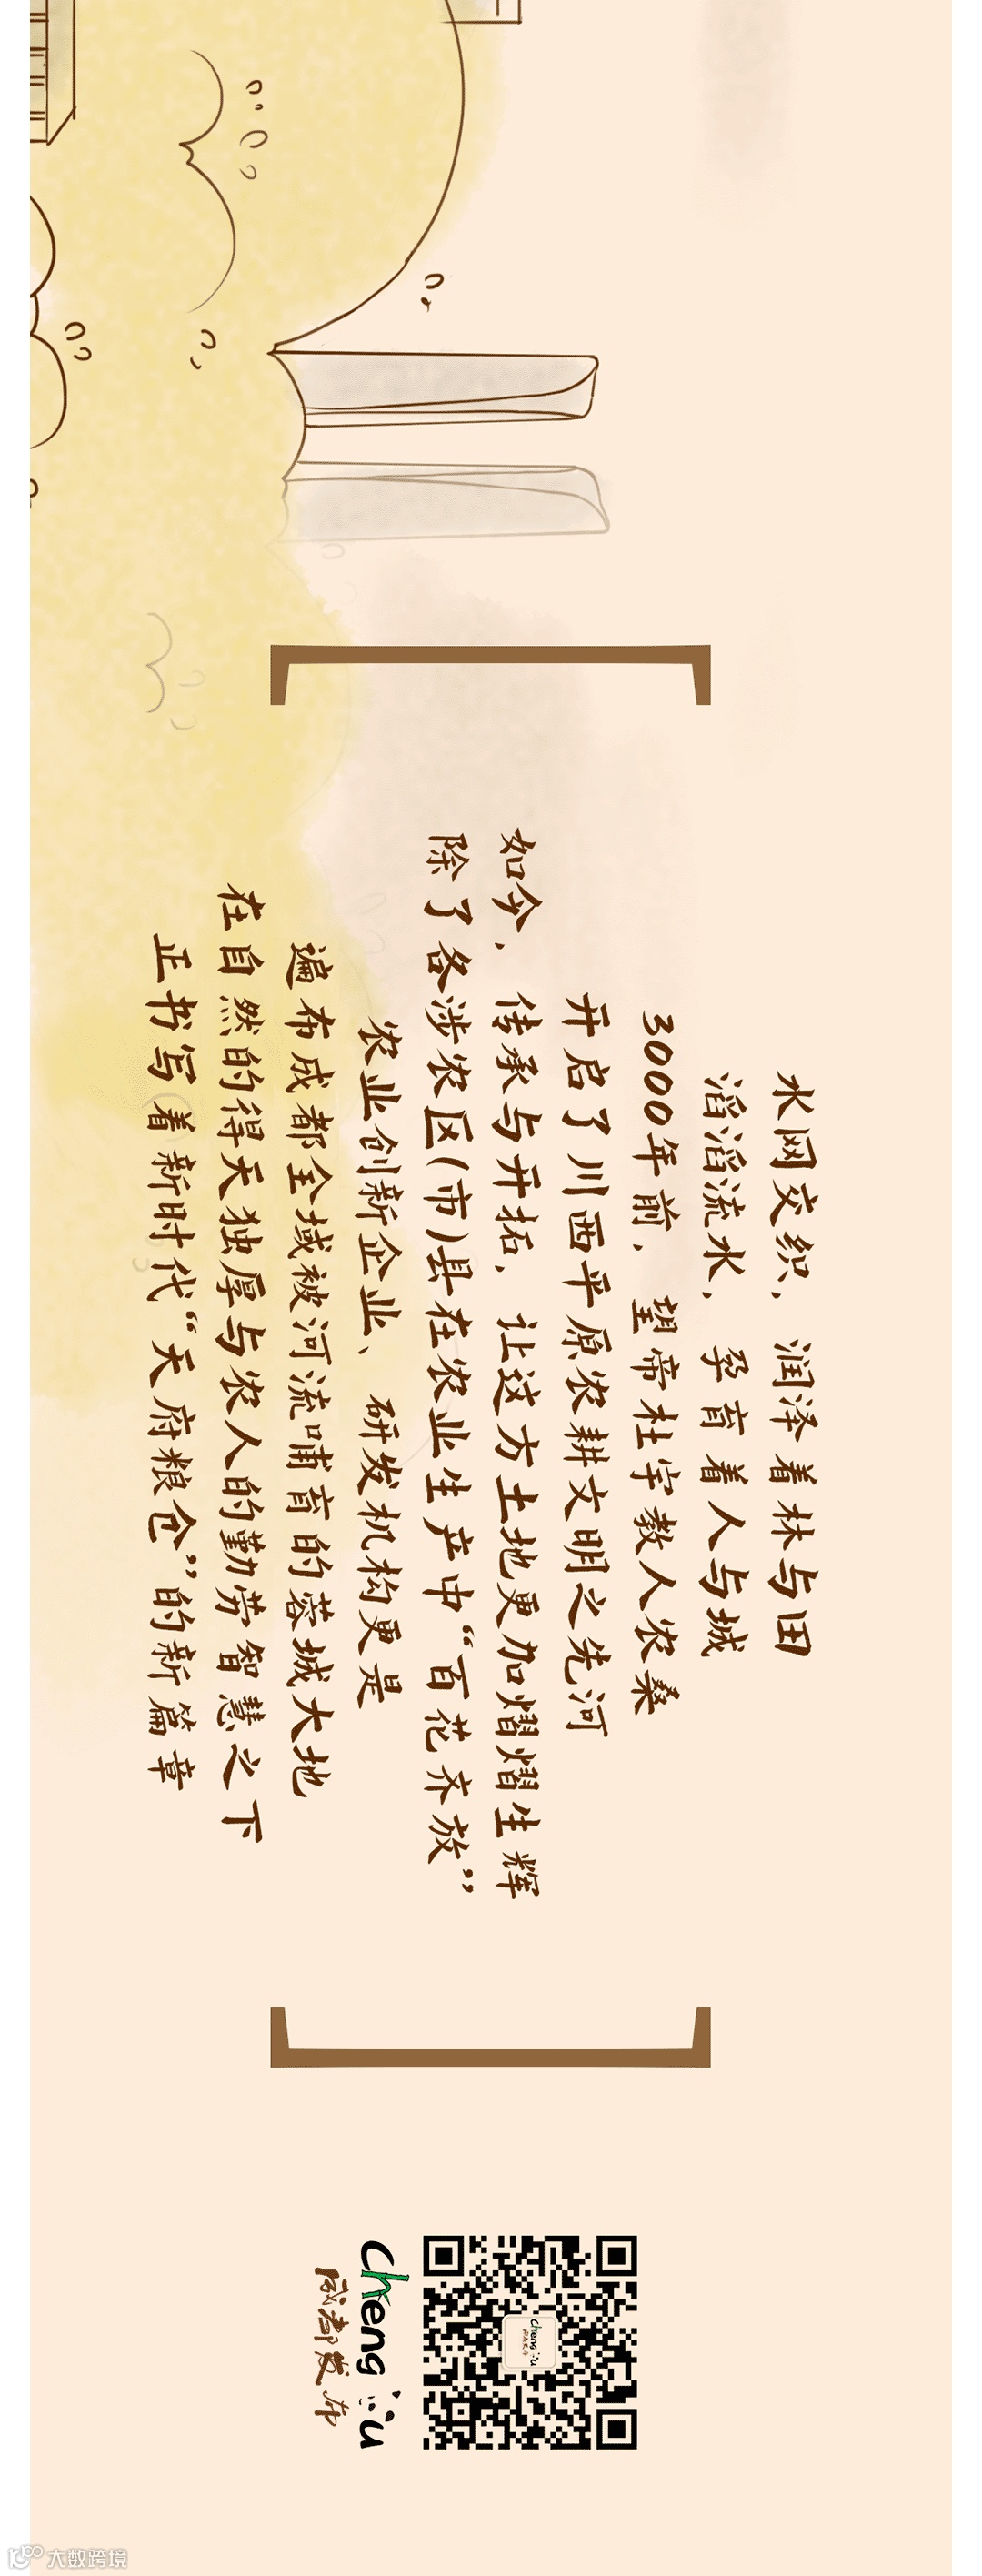 水网交织，润泽着林与田
滔滔流水，孕育着人与城
3000年前，望帝杜宇教人农桑
开启了川西平原农耕文明之先河
如今，传承与开拓，让这方土地更加熠熠生辉
除了各涉农区(市)县在农业生产中“百花齐放”
农业创新企业、研发机构更是
遍布成都全域被河流哺育的蓉城大地
在自然的得天独厚与农人的勤劳智慧之下
正书写着新时代“天府粮仓”的新篇章
Chengdu
成都发布
大数跨境